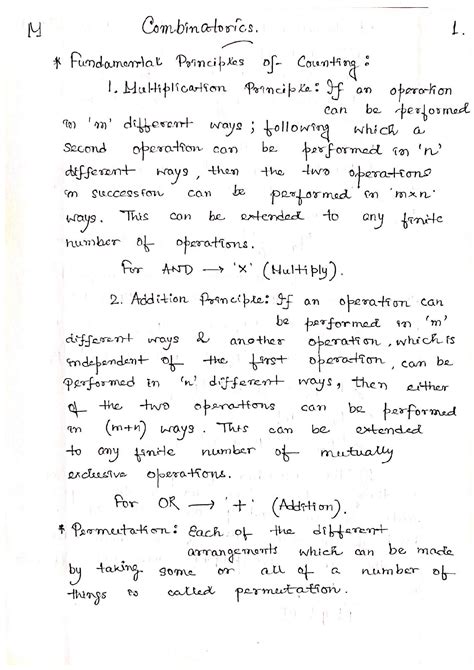 M Combinatorics. 1.
* Fundamental Principles of Counting :
1. Multiplication Principle: If an operation
can be performed
in 'm' different ways ; following which a
second operation can be performed in 'n'
different ways, then the two operations
in succession can be performed in 'm×n'
ways. This can be extended to any finite
number of operations.
For AND → '×' (Multiply).
2. Addition Principle: If an operation can
be performed in 'm'
different ways & another operation, which is
independent of the first operation, can be
performed in 'n' different ways, then either
of the two operations can be performed
in (m+n) ways. This can be extended
to any finite number of mutually
exclusive operations.
For OR → '+' (Addition).
* Permutation: Each of the different
arrangements which can be made
by taking some or all of a number of
things is called permutation.